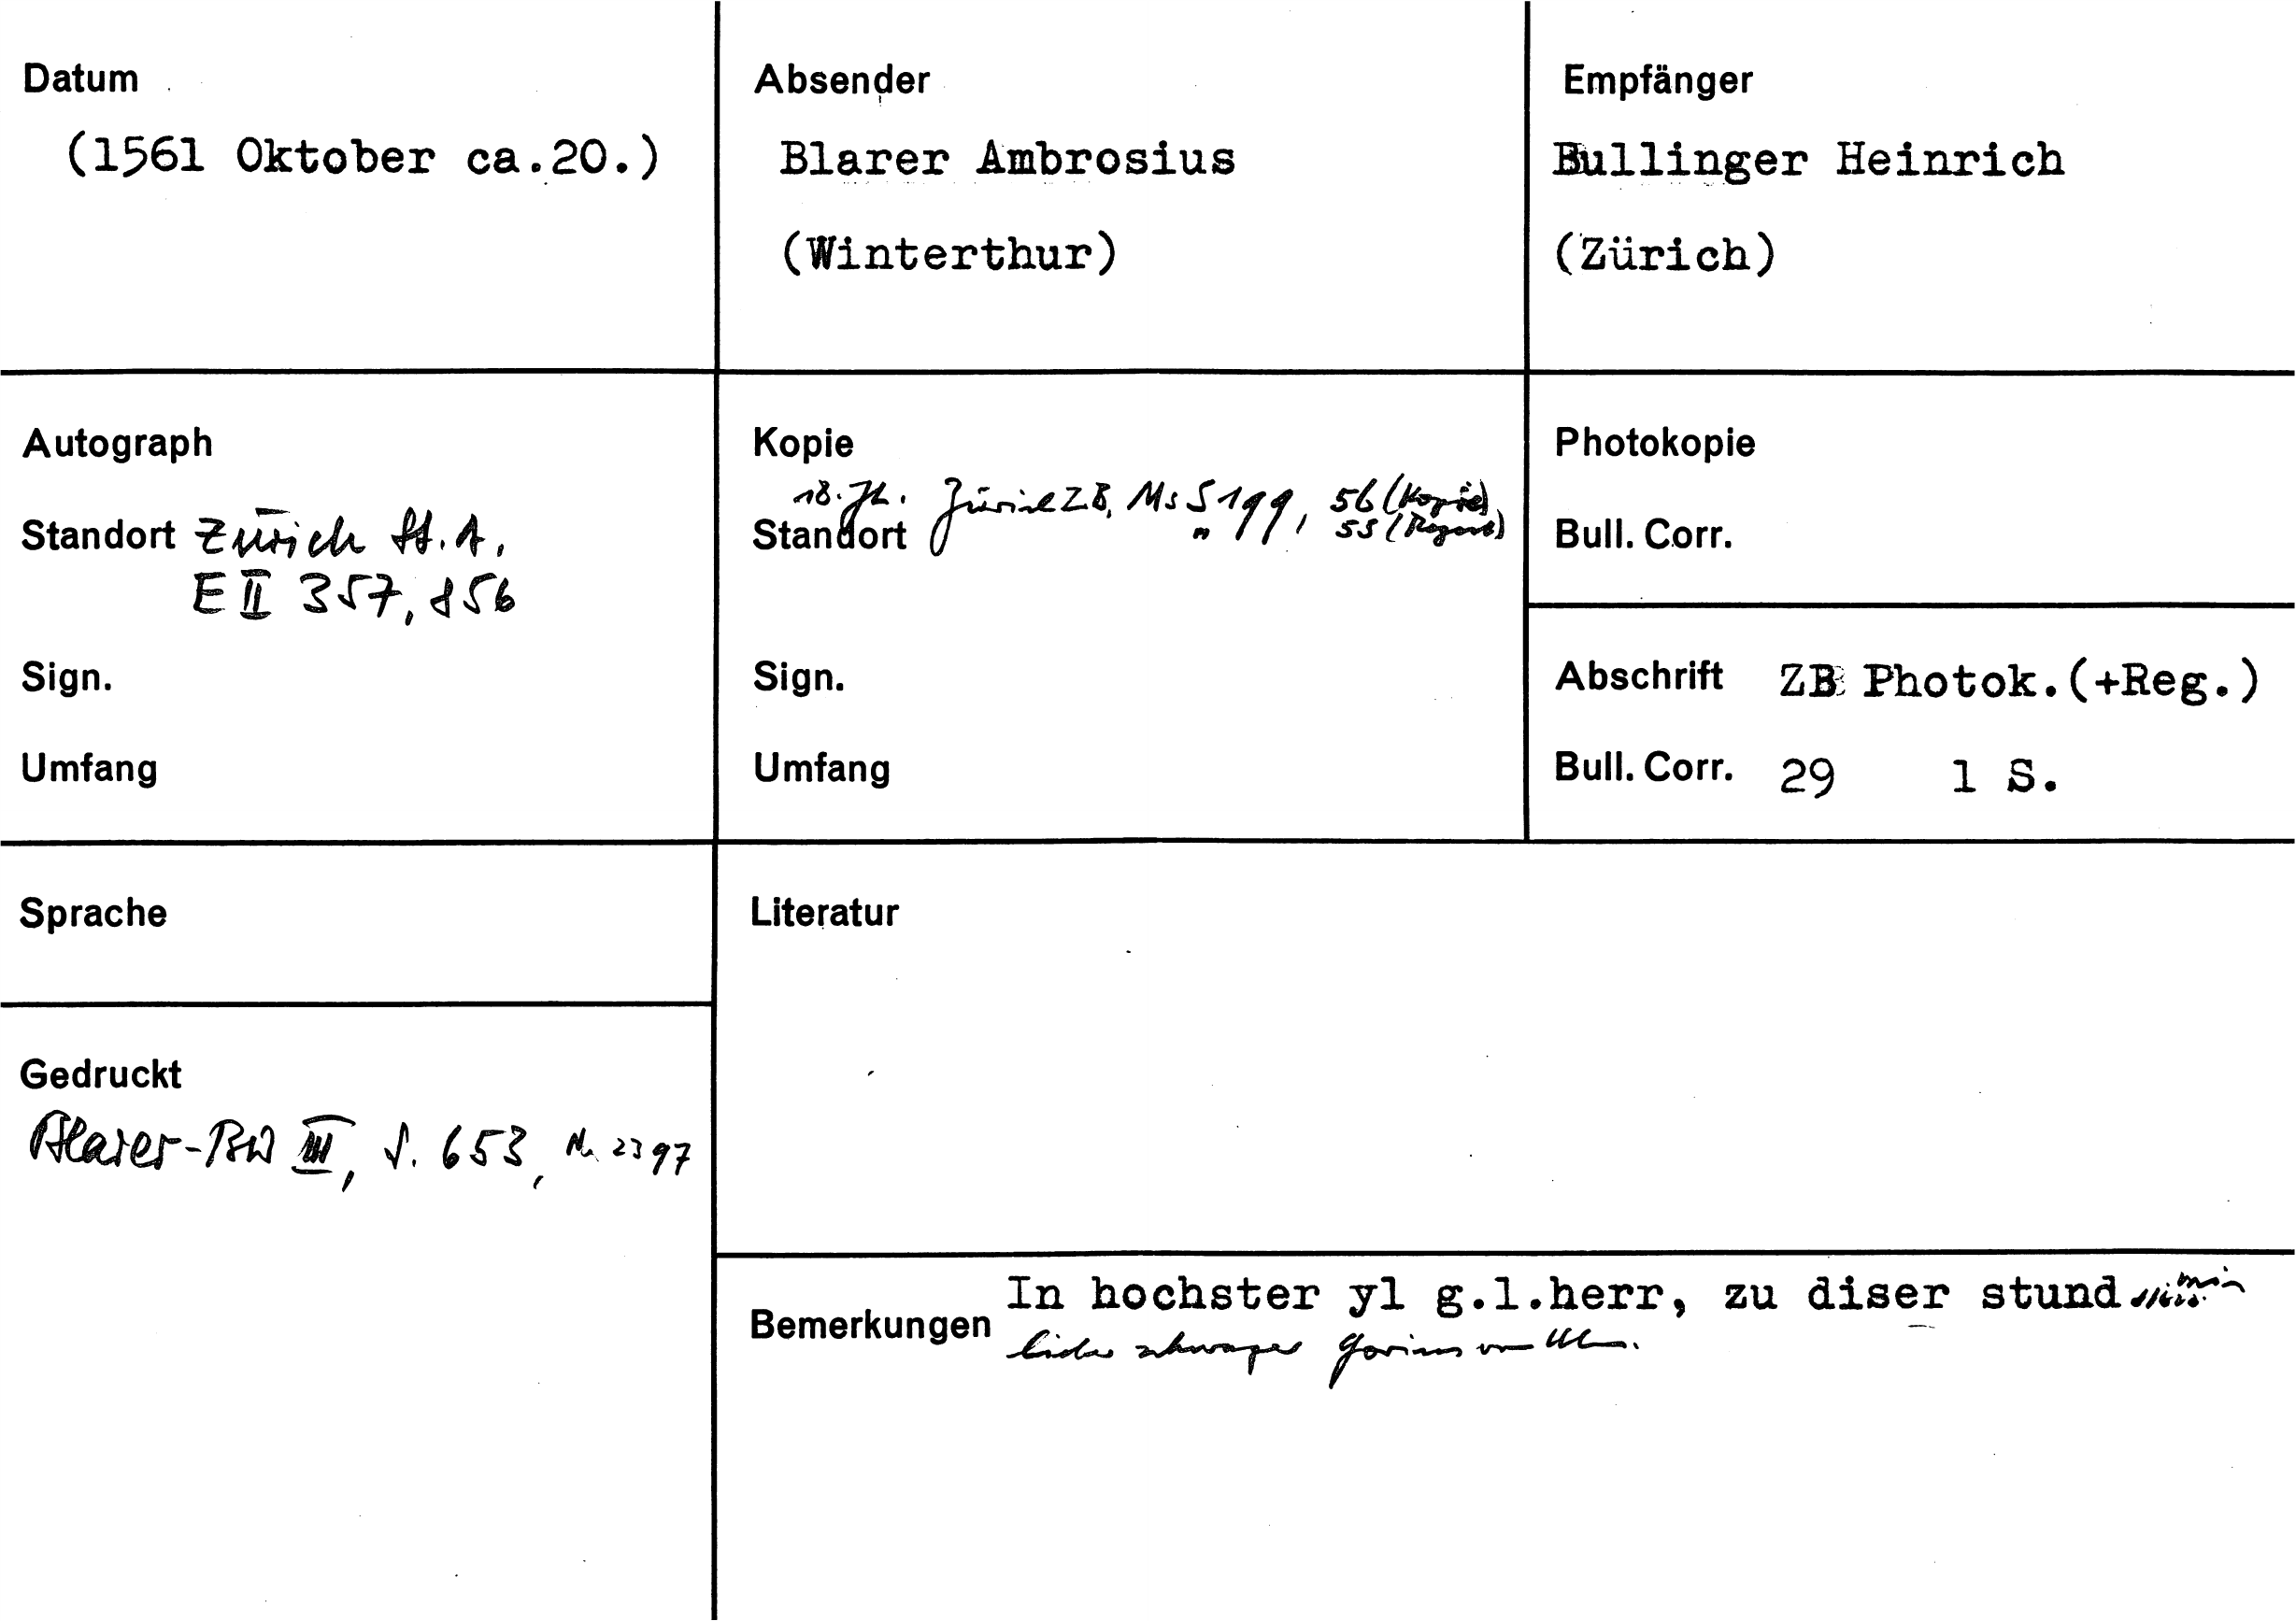 Datum
(1561 Oktober ca.20.)
Absender
Blarer Ambrosius
(Winterthur)
Empfänger
Bullinger Heinrich
(Zürich)
Autograph
Standort Zürich St.A.
E II 357, 856
Sign.
Umfang
Kopie
18. Jh. Zürich ZB, Ms S 199, 56 (Kopie)
Standort " 55 (Regest)
Sign.
Umfang
Photokopie
Bull. Corr.
Abschrift ZB Photok.(+Reg.)
Bull. Corr. 29 1 S.
Sprache
Gedruckt
Blarer-BW III, S. 653, Nr. 2397
Literatur
Bemerkungen In hochster yl g.l.herr, zu diser stund min
lieber schwager von Ulm.